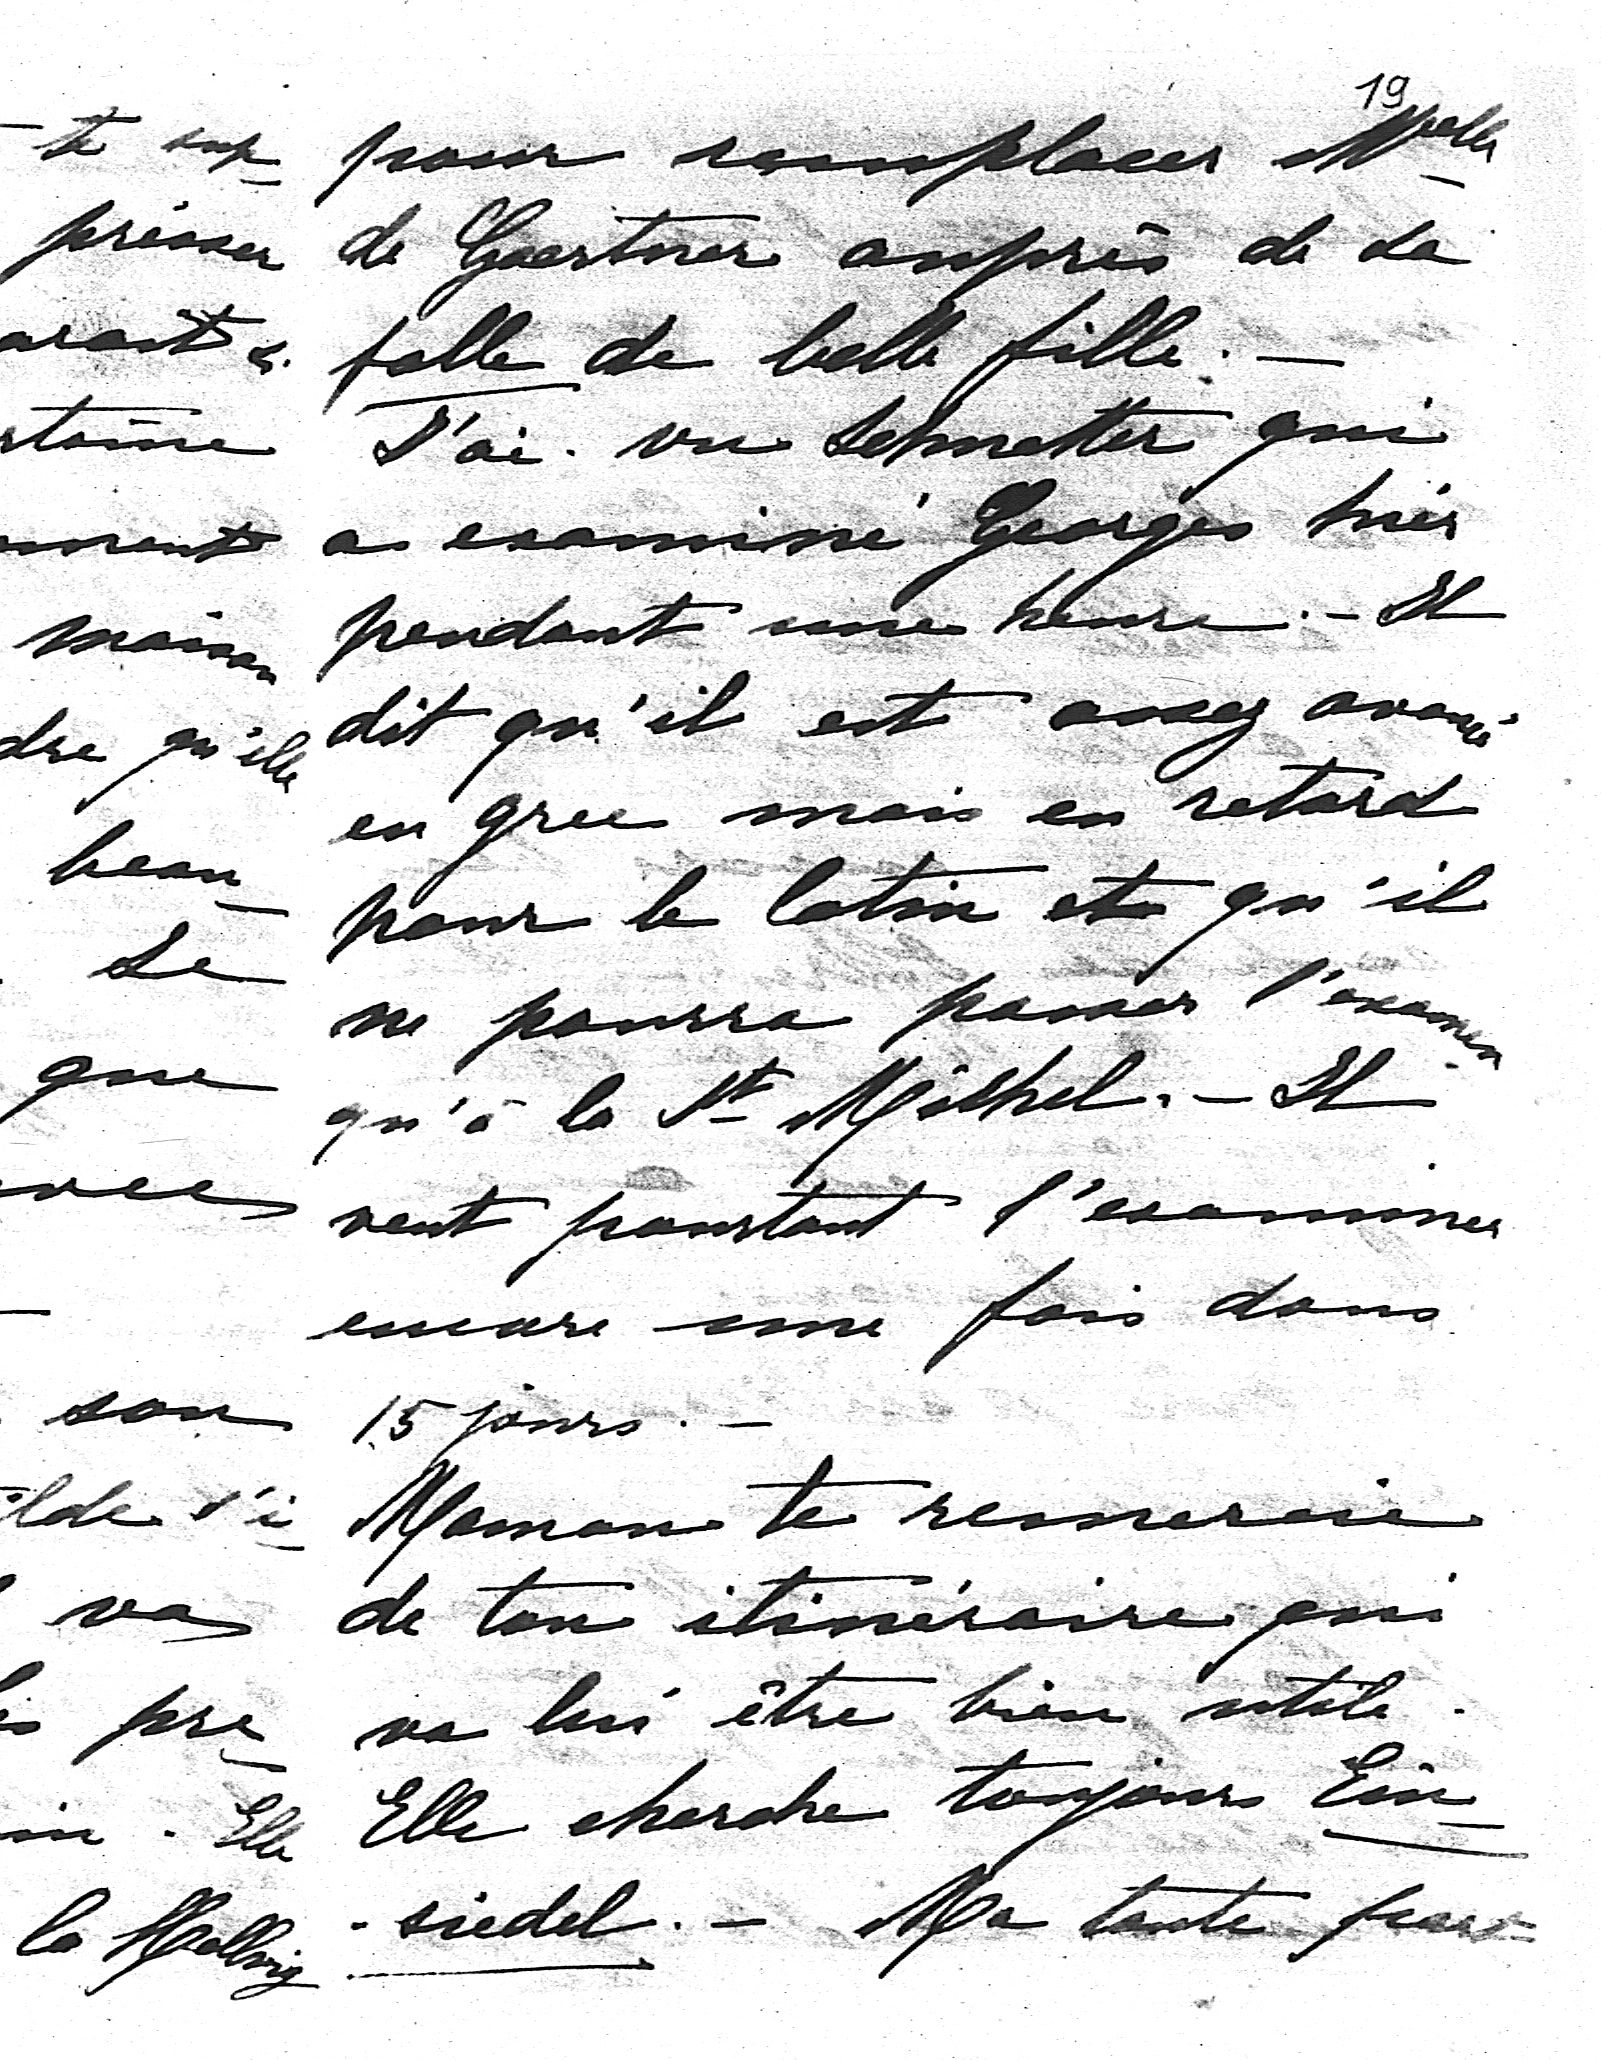 te sup-
presser
arait c.
rtaine
ment
maison
dre qu'elle
beau-
Le
que
avec
son
ilde s'i-
va
pre-
in. Elle
la Hellwig
19
pour remplacer Melle
de Gaertner auprès de la
folle de belle fille. —
J'ai vu Schmetter qui
a examiné Georges hier
pendant une heure. — Il
dit qu'il est assez avancé
en grec mais en retard
pour le latin et qu'il
ne pourra passer l'examen
qu'à la St Michel. — Il
veut pourtant l'examiner
encore une fois dans
15 jours. —
Maman te remercie
de ton itinéraire qui
va lui être bien utile.
Elle cherche toujours Ein-
siedel. — Ma tante part